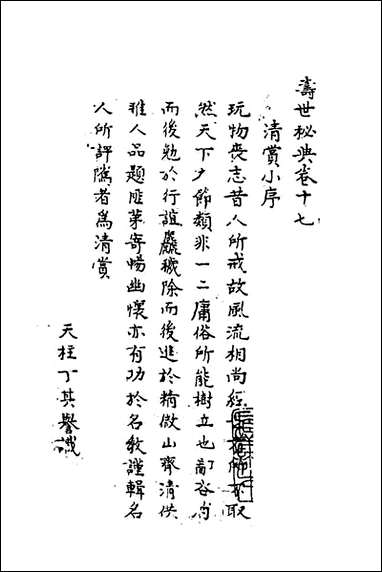 濤世秘典卷十七
清賞小序
玩物喪志昔人所戒故風流相尚經不取
然天下夕節類非一二庸俗所能樹立也鄙吝尚
而後勉於行誼麤穢除而後進於精微山齋清供
雅人品題匪苐寄暢幽懷亦有功於名敎謹輯名
人所評隲者爲清賞
天柱丁其譽識